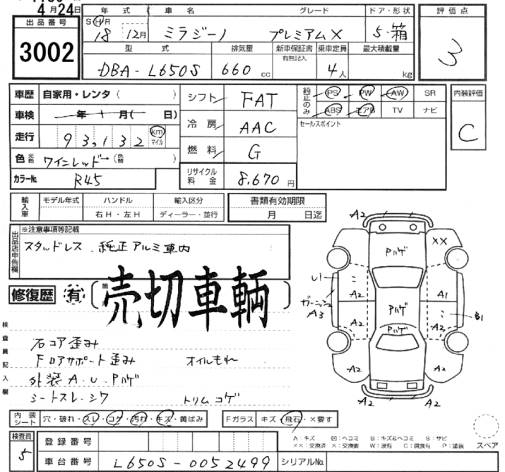 4月24日
出品番号 3002
年式 車名 グレード ドア・形状 評価点
S H 18年12月 ミラジーノ プレミアムX 5・箱 3
型式 排気量 新車保証書 乗車定員 最大積載量
有無記入
DBA-L650S 660cc 4人 kg
車歴 自家用・レンタ( ) シフト FAT 純正のみ PS PW AW SR 内装評価
車検 年 月( 日) 冷房 AAC ABS エアB TV ナビ C
走行 93,132 km マイル 燃料 G セールスポイント
色 元色 ワインレッド→(色替 ) リサイクル料金 8,670円
カラーNo. R45
輸入車 モデル年式 ハンドル 輸入区分 書類有効期限
右H・左H ディーラー・並行 月 日迄
出品店申告欄 ※注意事項等記載
スタッドレス 純正アルミ車内
修復歴 有
売切車輌
検査員記入欄
右コア歪み
Fロアサポート歪み オイルもれ
外装A.U.Pハゲ
シートスレ・シワ トリムコゲ
A2 A2
××
Pハゲ
U1 A2 A1
ガーニッシュ A3 Pハゲ B1
A2 A2
Pハゲ
A2 A2
内装シート 穴・破れ・スレ・コゲ・汚れ・キズ・黄ばみ Fガラス キズ・飛石・×要す
スペア
検査員 5 登録番号
車台番号 L650S-0052499 シリアルNo.